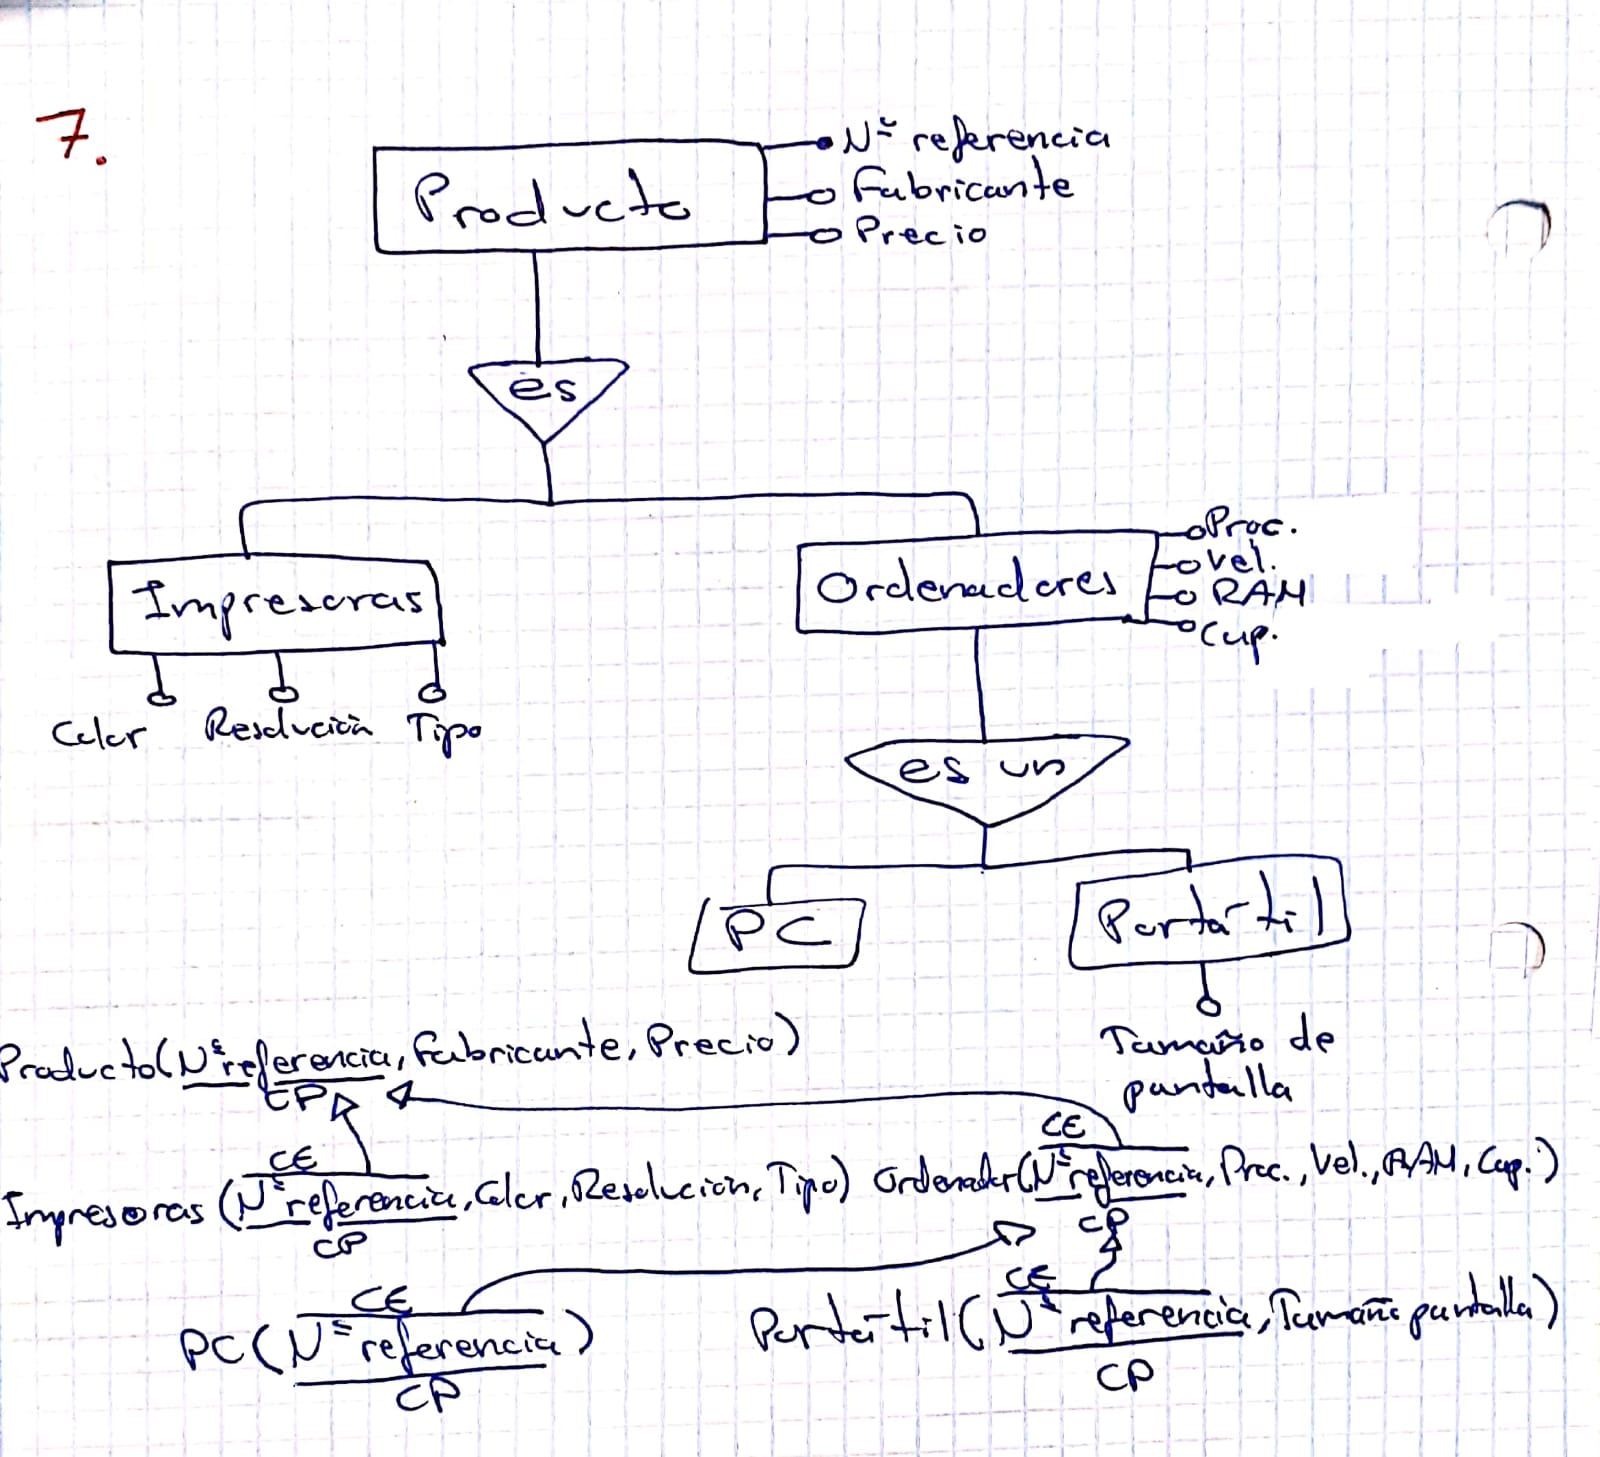 7.
Producto
Nº referencia
Fabricante
Precio
es
Impresoras
Color Resolución Tipo
Ordenadores
Proc.
Vel.
RAM
Cap.
es un
PC
Portátil
Tamaño de
pantalla
Producto(Nº referencia, Fabricante, Precio)
CP
CE
Impresoras (Nº referencia, Color, Resolución, Tipo)
CP
CE
Ordenador(Nº referencia, Proc., Vel., RAM, Cap.)
CP
CE
PC(Nº referencia)
CP
CE
Portátil(Nº referencia, Tamaño pantalla)
CP